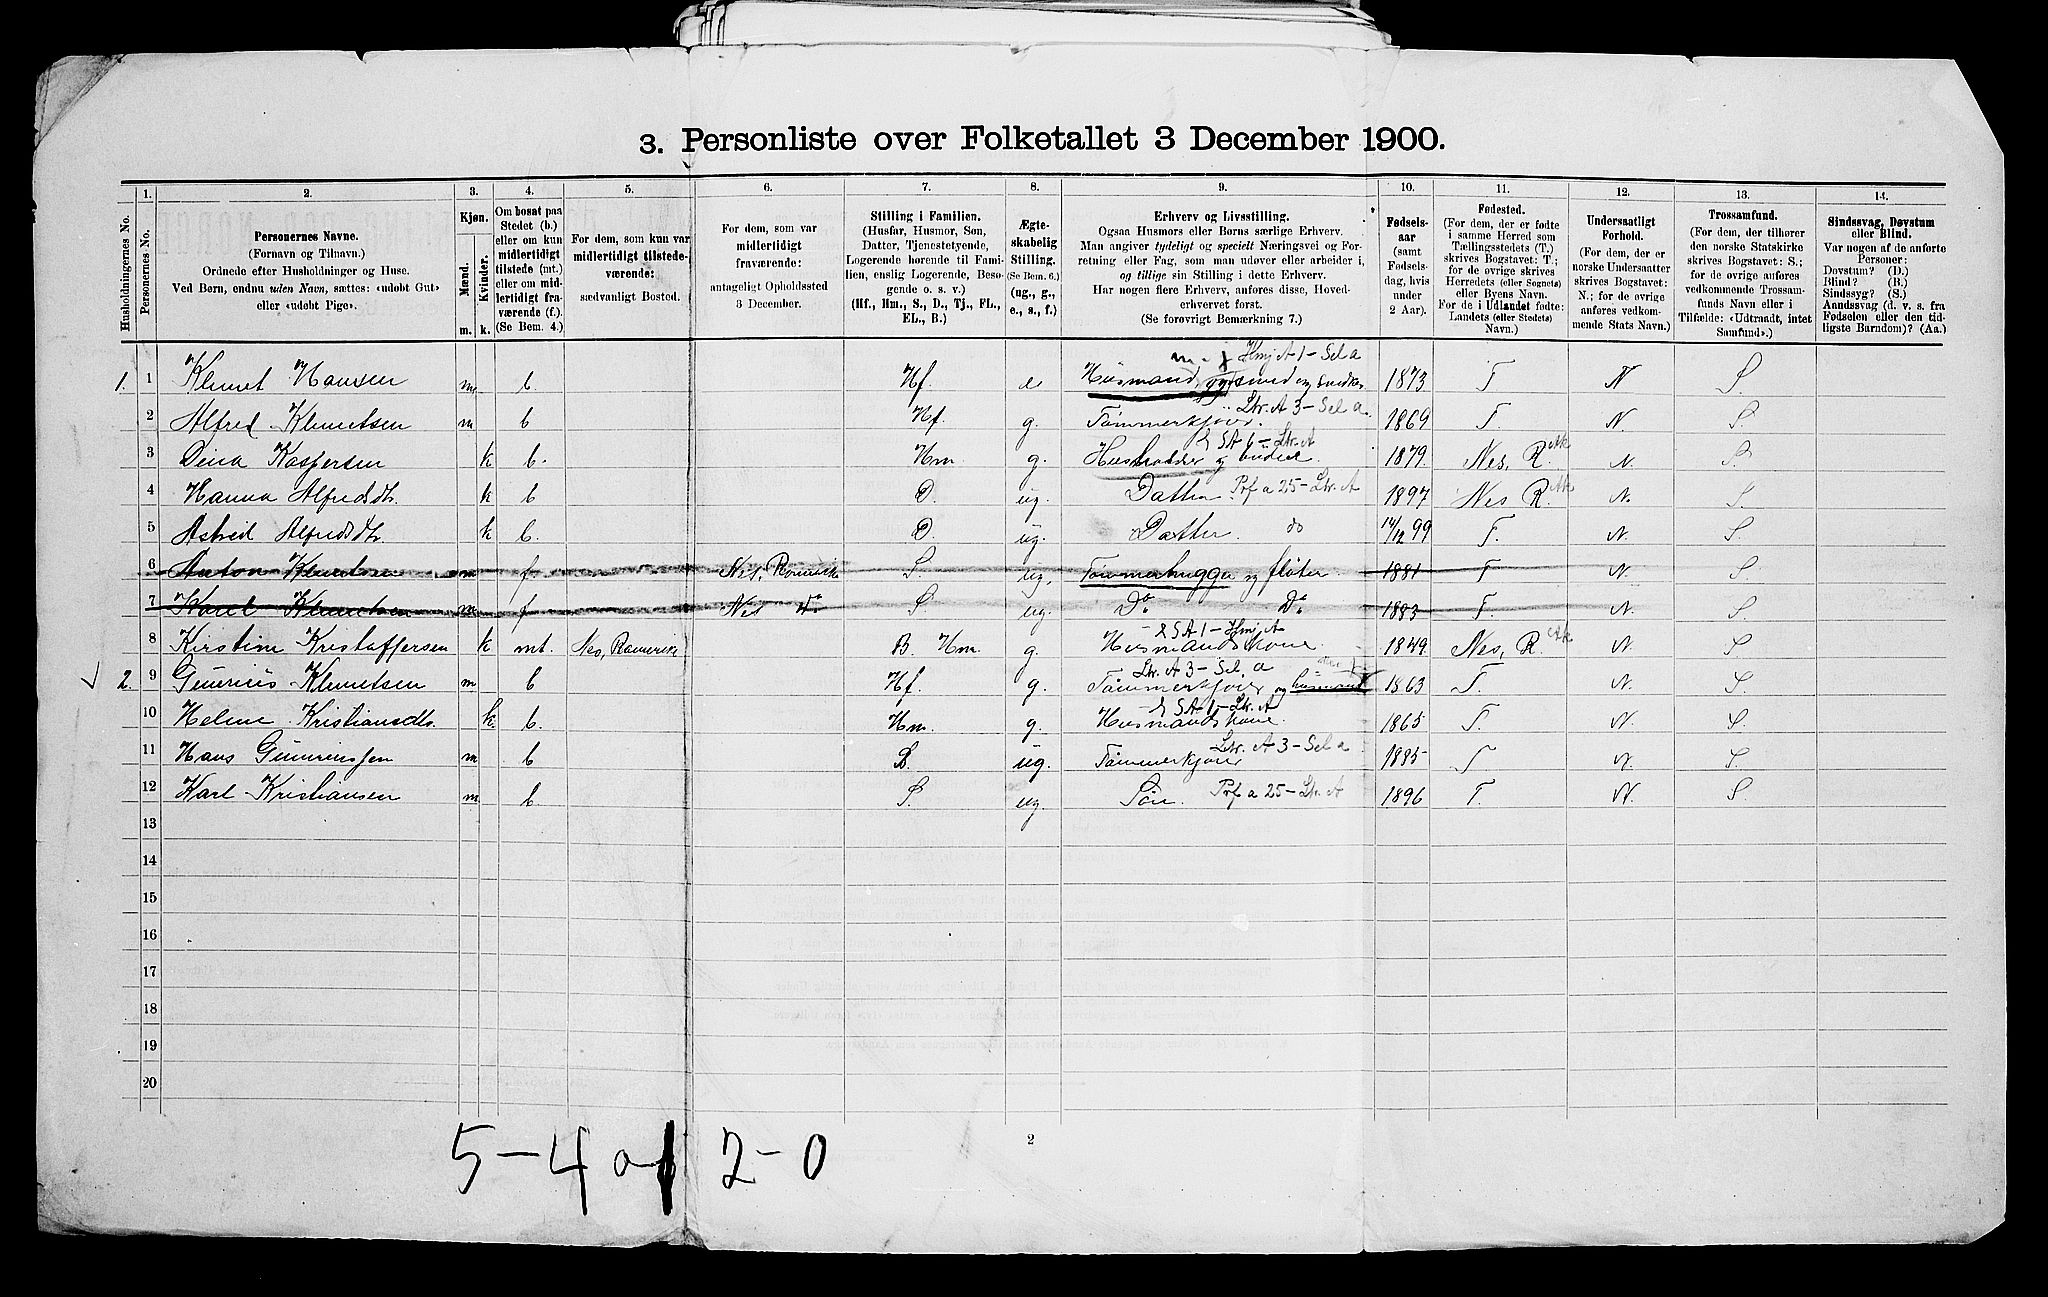 3. Personliste over Folketallet 3 December 1900.
Husholdningernes No.
1. Personernes No.
2. Personernes Navne. (Fornavn og Tilnavn.) Ordnede efter Husholdninger og Huse. Ved Børn, endnu uden Navn, sættes: «udøbt Gut» eller «udøbt Pige».
3. Kjøn. Mænd. m. Kvinder. k.
4. Om bosat paa Stedet (b.) eller om kun midlertidigt tilstede (mt.) eller om midlertidigt fraværende (f.). (Se Bem. 4.)
5. For dem, som kun var midlertidigt tilstedeværende: sædvanligt Bosted.
6. For dem, som var midlertidigt fraværende: antageligt Opholdssted 3 December.
7. Stilling i Familien. (Husfar, Husmor, Søn, Datter, Tjenestetyende, Logerende hørende til Familien, enslig Logerende, Besøgende o. s. v.) (Hf., Hm., S., D., Tj., FL., EL., B.)
8. Ægteskabelig Stilling. (Se Bem. 6.) (ug., g., e., s., f.)
9. Erhverv og Livsstilling. Ogsaa Husmors eller Børns særlige Erhverv. Man angiver tydeligt og specielt Næringsvei og Forretning eller Fag, som man udøver eller arbeider i, og tillige sin Stilling i dette Erhverv. Har nogen flere Erhverv, anføres disse, Hovederhvervet først. (Se forøvrigt Bemærkning 7.)
10. Fødselsaar (samt Fødselsdag, hvis under 2 Aar).
11. Fødested. (For dem, der er fødte i samme Herred som Tællingsstedets (T.) skrives Bogstavet: T.; for de øvrige skrives Herredets (eller Sognets) eller Byens Navn. For de i Udlandet fødte: Landets (eller Stedets) Navn.)
12. Undersaatligt Forhold. (For dem, der er norske Undersaatter skrives Bogstavet: N.; for de øvrige anføres vedkommende Stats Navn.)
13. Trossamfund. (For dem, der tilhører den norske Statskirke skrives Bogstavet: S.; for de øvrige anføres vedkommende Trossamfunds Navn eller i Tilfælde: «Udtraadt, intet Samfund».)
14. Sindssvag, Døvstum eller Blind. Var nogen af de anførte Personer: Døvstum? (D.) Blind? (B.) Sindssyg? (S.) Aandssvag (d. v. s. fra Fødselen eller den tidligste Barndom)? (Aa.)
1. 1 Klemet Hansen m. b. Hf. e Husmand og smed og Snedker Hmj A 1 - Sel a 1873 T N S.
2 Alfred Klemetsen m b Hf. g. Tømmerkjører. Ltr. A 3 - Sel a. 1869 T. N. S.
3 Dina Kaspersen k b. Hm g. Husholder og budeie. & SA 6 - Ltr. A 1879. Nes, R. Ak N. S.
4 Hanna Alfredsdtr. k b D. ug. Datter Prf a 25 - Ltr. A 1897 Nes R. Ak N. S.
5 Astrid Alfredsdtr. k b. D. ug. Datter. do 14/12 99 T. N. S.
6 Anton Klemetsen m f. Nes, Romerike S. ug. Tømmerhugger og fløter 1881 T N. S.
7 Karel Klemetsen m. f Nes do S. ug. Do Do 1883 T. N. S.
8 Kirstine Kristoffersen k mt. Nes, Romerike B. Hm. g. Husmandskone. & SA 1 - Hmj A 1849. Nes, R. Ak N. S.
2. 9 Gunerius Klemetsen m b Hf. g. Tømmerkjører og husmand Ltr. A 3 - Sel. a 1863 T. N. S.
10 Helene Kristiansdtr. k. b. Hm. g. Husmandskone. & SA 1 - Ltr. A 1865 T. N. S.
11 Hans Gunerinssen m b S. ug. Tømmerkjører Ltr. A 3 - Sel a 1885 T N. S.
12 Karl Kristiansen m b S. ug Søn. Prf a 25 - Ltr. A 1896 T. N. S.
13
14
15
16
17
18
19
20
2
5-4 2-0